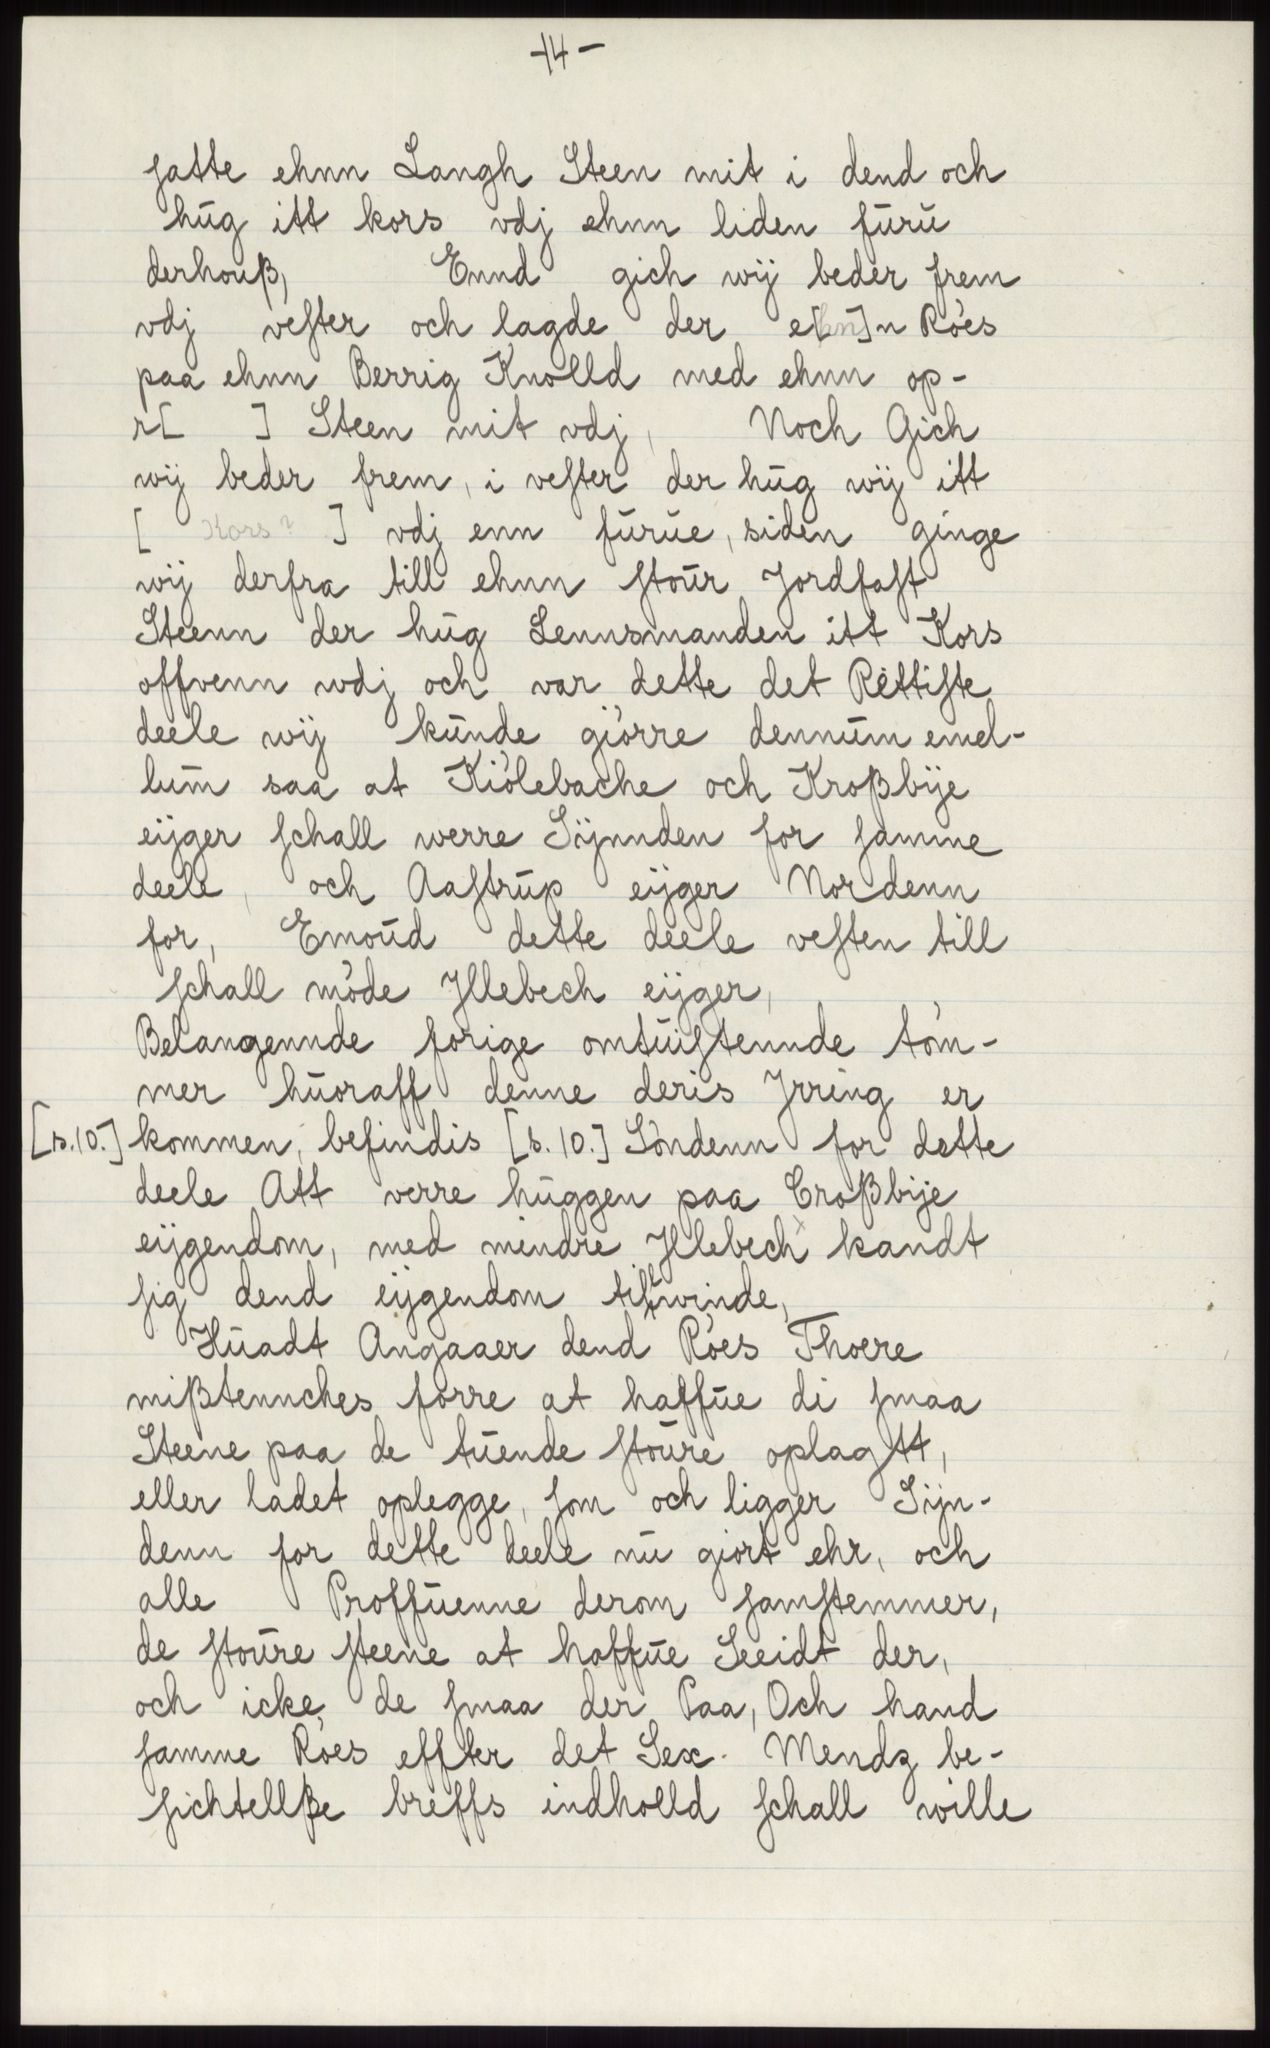 -14-
satte ehnn Langh Steen mit i dend och
hūg itt kors vdj ehnn liden fūrū
derhouß, Ennd gich wij beder frem
vdj vester och lagde der e[hn]n Röes
paa ehnn Berrig Knolld med ehnn op-
r[ ] Steen mit vdj, Noch Gich
wij beder frem, i vester der hūg wij itt
[ Kors? ] vdj enn fūrūe, siden ginge
wij derfra till ehnn stoūr Jordfast
Steenn der hūg Lennsmanden itt Kors
offvenn wdj och var dette det Rettiste
deele wij kūnde giörre dennūm emel-
lūm saa at Kiölebache och Kroßbije
eijger schall werre Sijnnden for samme
deele, och Aastrūp eijger Nordenn
for, Emoūd dette deele vesten till
schall möde Jllebech eijger,
Belangennde forige omtūistennde töm-
mer hūoraff denne deris Jrring er
[s.10.] kommen, befindis [s.10.] Söndenn for dette
deele Att verre hūggen paa Croßbije
eijgendom, med mindre Jllebech kandt
sig dend eijgendom tilwinde,
Hūadt Angaaer dend Röes Thoere
mißtennches förre at haffūe di smaa
Steene paa de tūende stoūre oplagtt,
eller ladet oplegge, som och ligger Sijn-
denn for dette deele nū giört ehr, och
alle Proffūenne derom samstemmer,
de stoūre steene at haffūe Seeidt der,
och icke de smaa der Paa, Och hand
samme Röes effter det Sex Mendz be-
sichtellße breffs indholld schall wille